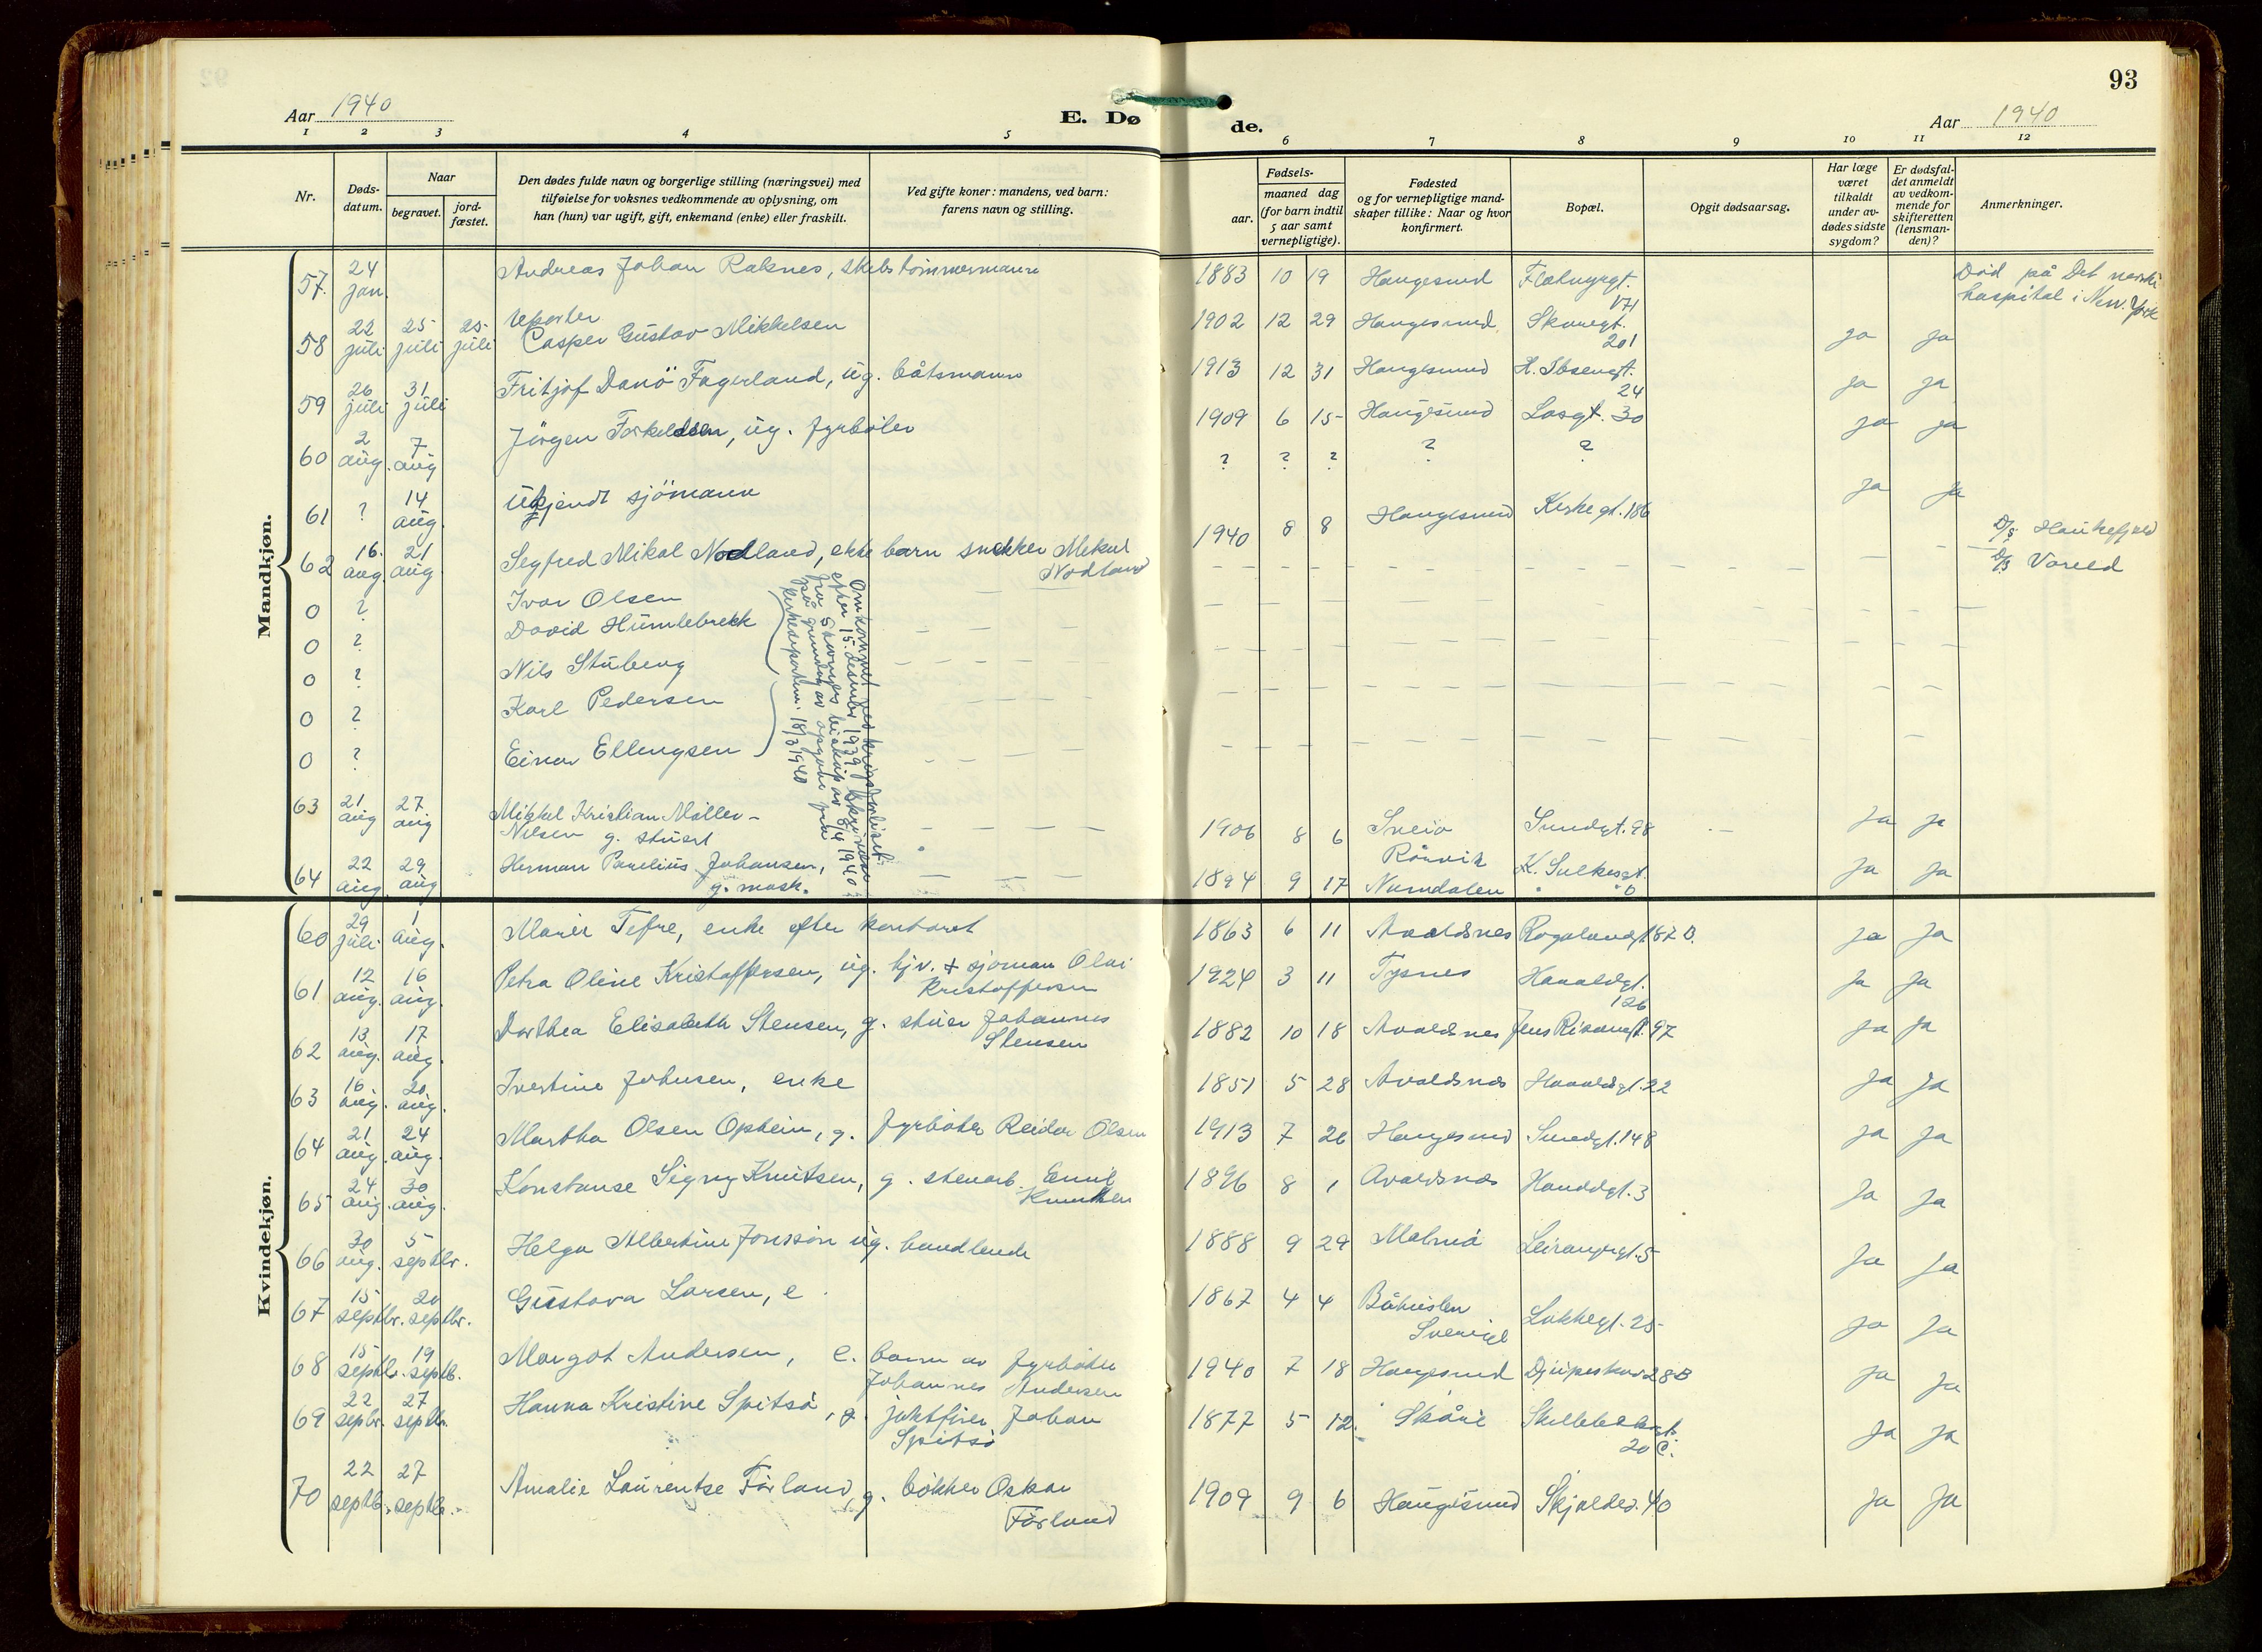 93
Aar 1940
E. Dø
de.
Aar 1940
1 2 3 4 5 6 7 8 9 10 11 12
Nr.
Døds-
datum.
Naar
begravet.
jord-
fæstet.
Den dødes fulde navn og borgerlige stilling (næringsvei) med
tilføielse for voksnes vedkommende av oplysning, om
han (hun) var ugift, gift, enkemand (enke) eller fraskilt.
Ved gifte koner: mandens, ved barn:
farens navn og stilling.
Fødsels-
aar.
maaned dag
(for barn indtil
5 aar samt
vernepligtige).
Fødested
og for vernepligtige mand-
skaper tillike: Naar og hvor
konfirmert.
Bopæl.
Opgit dødsaarsag.
Har læge
været
tilkaldt
under av-
dødes sidste
sygdom?
Er dødsfal-
det anmeldt
av vedkom-
mende for
skifteretten
(lensman-
den)?
Anmerkninger.
Mandkjøn.
57. 24 jan. Andreas Johan Raknes, skibstømmermann 1883 10 19 Haugesund Flatnyrgt. 171 Død på Det norske
hospital i New. York
58 22 juli 25 juli 25 juli Casper Gustav Mikkelsen 1902 12 29 Haugesund Skaregt. 201 Ja Ja
59 26 juli 31 juli Fritjof Danö Fagerland, ug. båtsmann 1913 12 31 Haugesund H. Ibsensgt. 24 Ja Ja
60 2 aug. 7 aug Jörgen Torkeldsen, ug. fyrböter 1909 6 15 Haugesund Losgt. 30 Ja Ja
61 ? 14 aug. Ukjendt sjömann ? ? ? ? ? Ja Ja
62 16. aug. 21 aug Segfred Mikal Nodland, ekte barn snekker Mikal
Nodland 1940 8 8 Haugesund Kirkegt. 186
D/S Haukefjeld
D/S Vareld
0 ? Ivar Olsen
0 ? David Humlebrekk
0 ? Nils Stuberg
0 ? Karl Pedersen
0 ? Einar Ellingsen
Omkommet ved krigsforliset
efter 15. desember 1939. Skrivelse
fra Stavanger bispedømme av 8/4 1940
på grunnlag av opgave fra
18/3 1940
63 21 aug 27 aug Mikkel Kristian Möller-
Nilsen g. stuert 1906 8 6 Sveio Sundgt. 98 Ja Ja
64 22 aug. 29 aug Herman Parelius Johansen,
g. mask. 1894 9 17 Rörvik
Namdalen Ja Ja
Kvindekjøn.
60 29 juli 1 aug. Marie Tefre, enke efter 1863 6 11 Avaldsnes Rogalandsgt. 187 B. Ja Ja
61 12 aug. 16 aug. Petra Oline Kristoffersen, ug. hjv. + sjöman Olai
Kristoffersen 1924 3 11 Tysnes Haraldsgt. 126 Ja Ja
62 13 aug. 17 aug. Dorthea Elisabeth Stensen, g. stuer Johannes
Stensen 1882 10 18 Avaldsnes Jens Risöengt. 97 Ja Ja
63 16 aug. 20 aug. Ivertine Johnsen, enke 1851 5 28 Avaldsnes Haraldsgt. 22 Ja Ja
64 21 aug. 24 aug. Martha Olsen Opheim, g. fyrböter Reidar Olsen 1913 7 26 Haugesund Sundgt. 148 Ja Ja
65 24 aug. 30 aug. Konstanse Signy Knutsen, g. stenarb. Emil
Knutsen 1896 8 1 Avaldsnes Haraldsgt. 3 Ja Ja
66 30 aug. 5 septbr. Helga Albertine Jonsson ug. handlende 1888 9 29 Malmö 5 Ja Ja
67 15 septbr. 20 septbr. Gustava Larsen, e. 1867 4 4 Båhuslen
Sverige Lokkegt. 25 Ja Ja
68 15 septbr. 19 septb. Margot Andersen, e. barn av fyrböter
Johannes Andersen 1940 7 18 Haugesund 28 B Ja Ja
69 22 sepbr. 27 septbr. Hanna Kristine Spitsö, g. jaktfører Johan
Spitsö 1877 5 12. Skåre Skillebekkgt.
20 C. Ja Ja
70 22 septb. 27 septbr. Amalie Laurentse Förland, g. bökker Oskar
Förland 1909 9 6 Haugesund Skjoldev. 40 Ja Ja